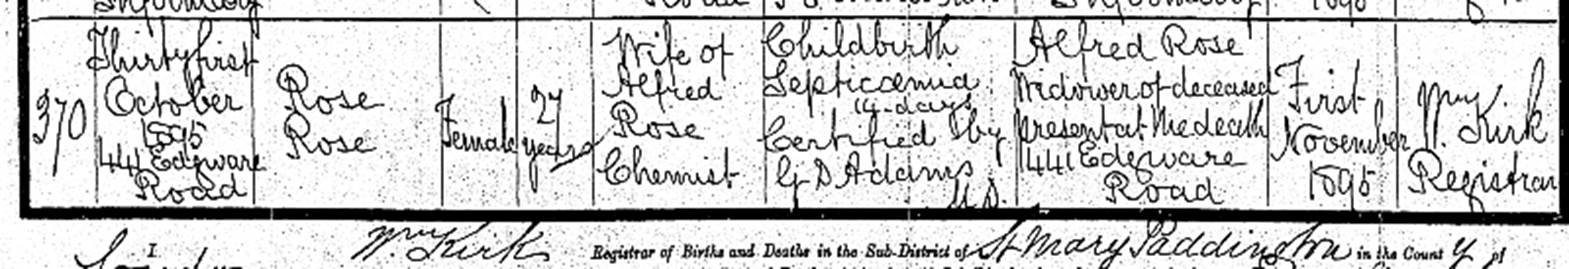 370
Thirty first
October
1895
441 Edgware
Road
Rose
Rose
Female
27
years
Wife of
Alfred
Rose
Chemist
Childbirth
Septicæmia
14 days
Certified by
G D Adams
M.D.
Alfred Rose
Widower of deceased
present at the death
441 Edgware
Road
First
November
1895
Wm Kirk
Registrar
I Wm Kirk Registrar of Births and Deaths in the Sub-District of St Mary Paddington in the County of